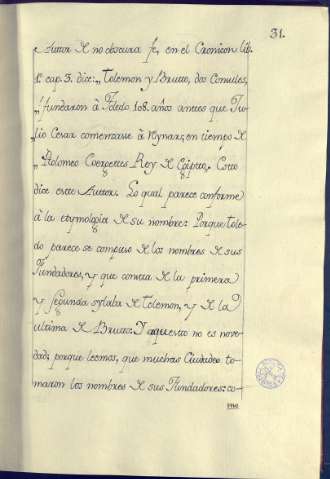 31.
Autor de no obscura fe, en el Cronicon lib.
1º cap. 3. dice: "Tolemon y Bruto, dos Consules,
"fundaron à Toledo 108. años antes que Ju-
"lio Cesar comenzase à Rynar; en tiempo de
"Ptolomeo Coergetes Rey de Egipto. Esto
dice este Autor. Lo qual parece conforme
à la etymologia de su nombre: Porque Tole-
do parece se compuso de los nombres de sus
Fundadores, y que consta de la primera
y segunda sylaba de Tolemon, y de la
ultima de Bruto: Y aquesto no es nove-
dad; porque leemos, que muchas Ciudades to-
maron los nombres de sus Fundadores: co-
mo